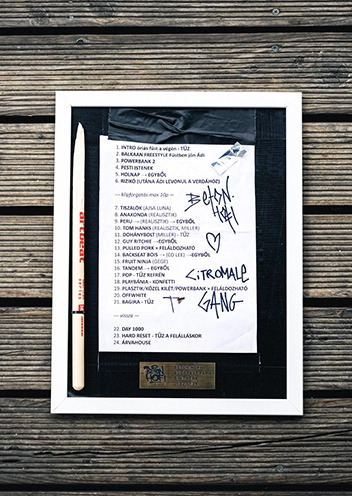 1. INTRO óriás füst a végén - TŰZ
2. BALKAAN FREESTYLE Füstben jön Ádi
3. POWERBANK 2
4. PESTI ISTENEK
5. HOLNAP → EGYBŐL
6. RIZIKÓ (UTÁNA ÁDI LEVONUL A VERDÁHOZ)
--- képforgatás max 10p ---
7. TISZALÖK (AJSA LUNA)
8. ANAKONDA (REALISZTIK)
9. PERU → (REALISZTIK) → EGYBŐL
10. TOM HANKS (REALISZTIK, MILLER)
11. DOHÁNYBOLT (MILLER) - TŰZ
12. GUY RITCHIE → EGYBŐL
13. PULLED PORK = FELÁLDOZHATÓ
14. BACKSEAT BOIS → (CO LEE) → EGYBŐL
15. FRUIT NINJA (GEGE)
16. TANDEM → EGYBŐL
17. POP - TŰZ REFRÉN
18. PLAYBÁNIA - KONFETTI
19. PLASZTIK/KÖZEL KILÉT/POWERBANK = FELÁLDOZHATÓ
20. OFFWHITE
21. BAGIRA - TŰZ
--- vissza ---
22. DAY 1000
23. HARD RESET - TŰZ A FELÁLLÁSKOR
24. ÁRVAHOUSE
BETON.
HOFI
CITROMALE
GANG
artbeat